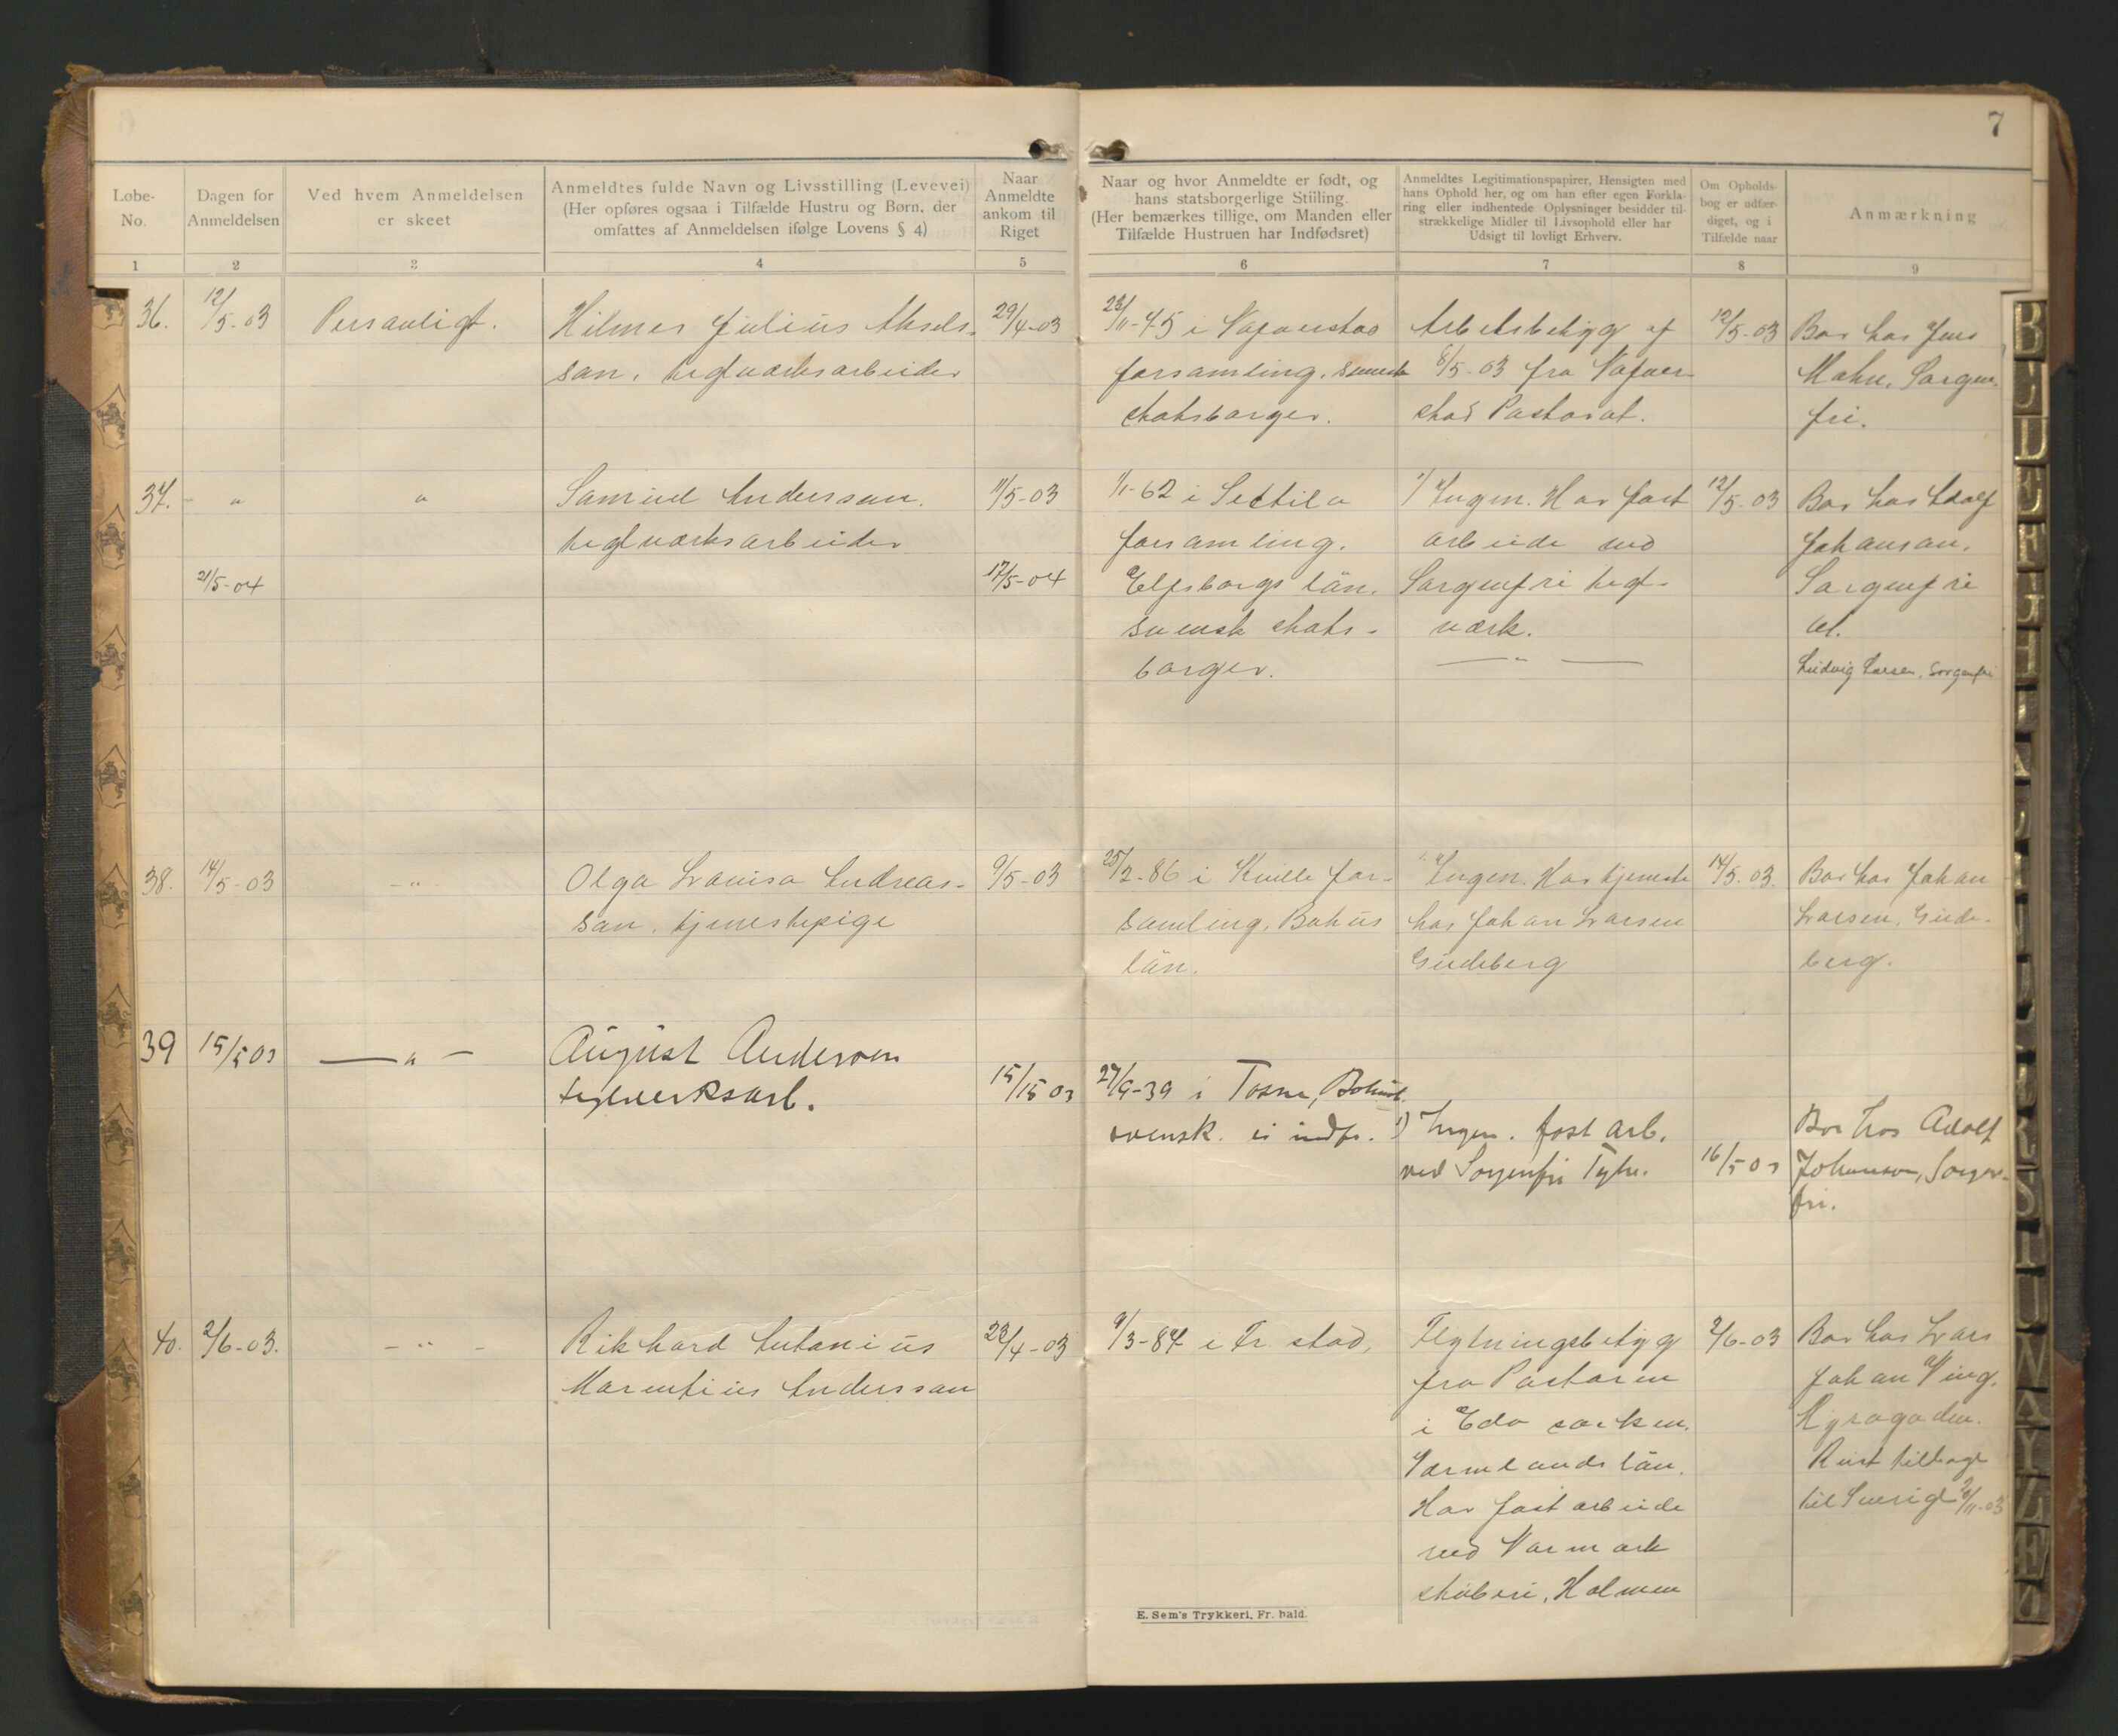 7
Løbe-
No.
Dagen for
Anmeldelsen
Ved hvem Anmeldelsen
er skeet
Anmeldtes fulde Navn og Livsstilling (Levevei)
(Her opføres ogsaa i Tilfælde Hustru og Børn, der
omfattes af Anmeldelsen ifølge Lovens § 4)
Naar
Anmeldte
ankom til
Riget
Naar og hvor Anmeldte er født, og
hans statsborgerlige Stilling.
(Her bemærkes tillige, om Manden eller
Tilfælde Hustruen har Indfødsret)
Anmeldtes Legitimationspapirer, Hensigten med
hans Ophold her, og om han efter egen Forkla-
ring eller indhentede Oplysninger besidder til-
strækkelige Midler til Livsophold eller har
Udsigt til lovligt Erhverv.
Om Opholds-
bog er udfær-
diget, og i
Tilfælde naar
Anmærkning
1 2 3 4 5 6 7 8 9
36.
12/5-03
Personligt.
Hilmer Julius Aksels-
son, teglværksarbeider
29/4-03
23/11-45 i
forsamling, svensk
statsborger.
Arbetsbetyg af
8/5-03 fra
stad Pastorat.
12/5-03
Bor hos Jens
Sorgen-
fri.
37.
"
"
Samuel Andersson.
teglværksarbeider
11/5-03
1/1-62 i Seltila
forsamling.
Elfsborgs län.
svensk stats-
borger.
1) Ingen. Har fast
arbeide ved
Sorgenfri tegl-
værk.
— " —
12/5-03
Bor hos Adolf
Johanson.
Sorgenfri
Ludvig Larsen, Sorgenfri
21/5-04
17/5-04
38.
14/5-03
- " -
Olga Lovisa Andreas-
son, tjenestepige
9/5-03
25/2-86 i Kville for-
samling, Bohus
län.
Ingen. Har tjeneste
hos Johan Larsen
Gudeberg
14/5-03.
Bor hos Johan
Larsen, Gude-
berg.
39
15/5 03
— " —
August Andersen
teglverksarb.
15/15 03
27/9-39 i Bohusl.
svensk. ei indfr.
1) Ingen. fast arb.
ved Sorgenfri Tglv.
16/5 03
Bor hos Adolf
Johanson, Sorgen-
fri.
40.
2/6-03.
- " -
Rikhard Antonius
Andersson
23/4-03
9/3-84 i Fr. stad,
Flytningsbetyg
fra Pastoren
i Eda socken,
Värmlands län.
Har fast arbeide
ved Varmark
støberi, Holmen
2/6-03
Bor hos Lars
Johan Ving,
Reist tilbage
til Sverige
E. Sem's Trykkeri, Fr. hald.
B